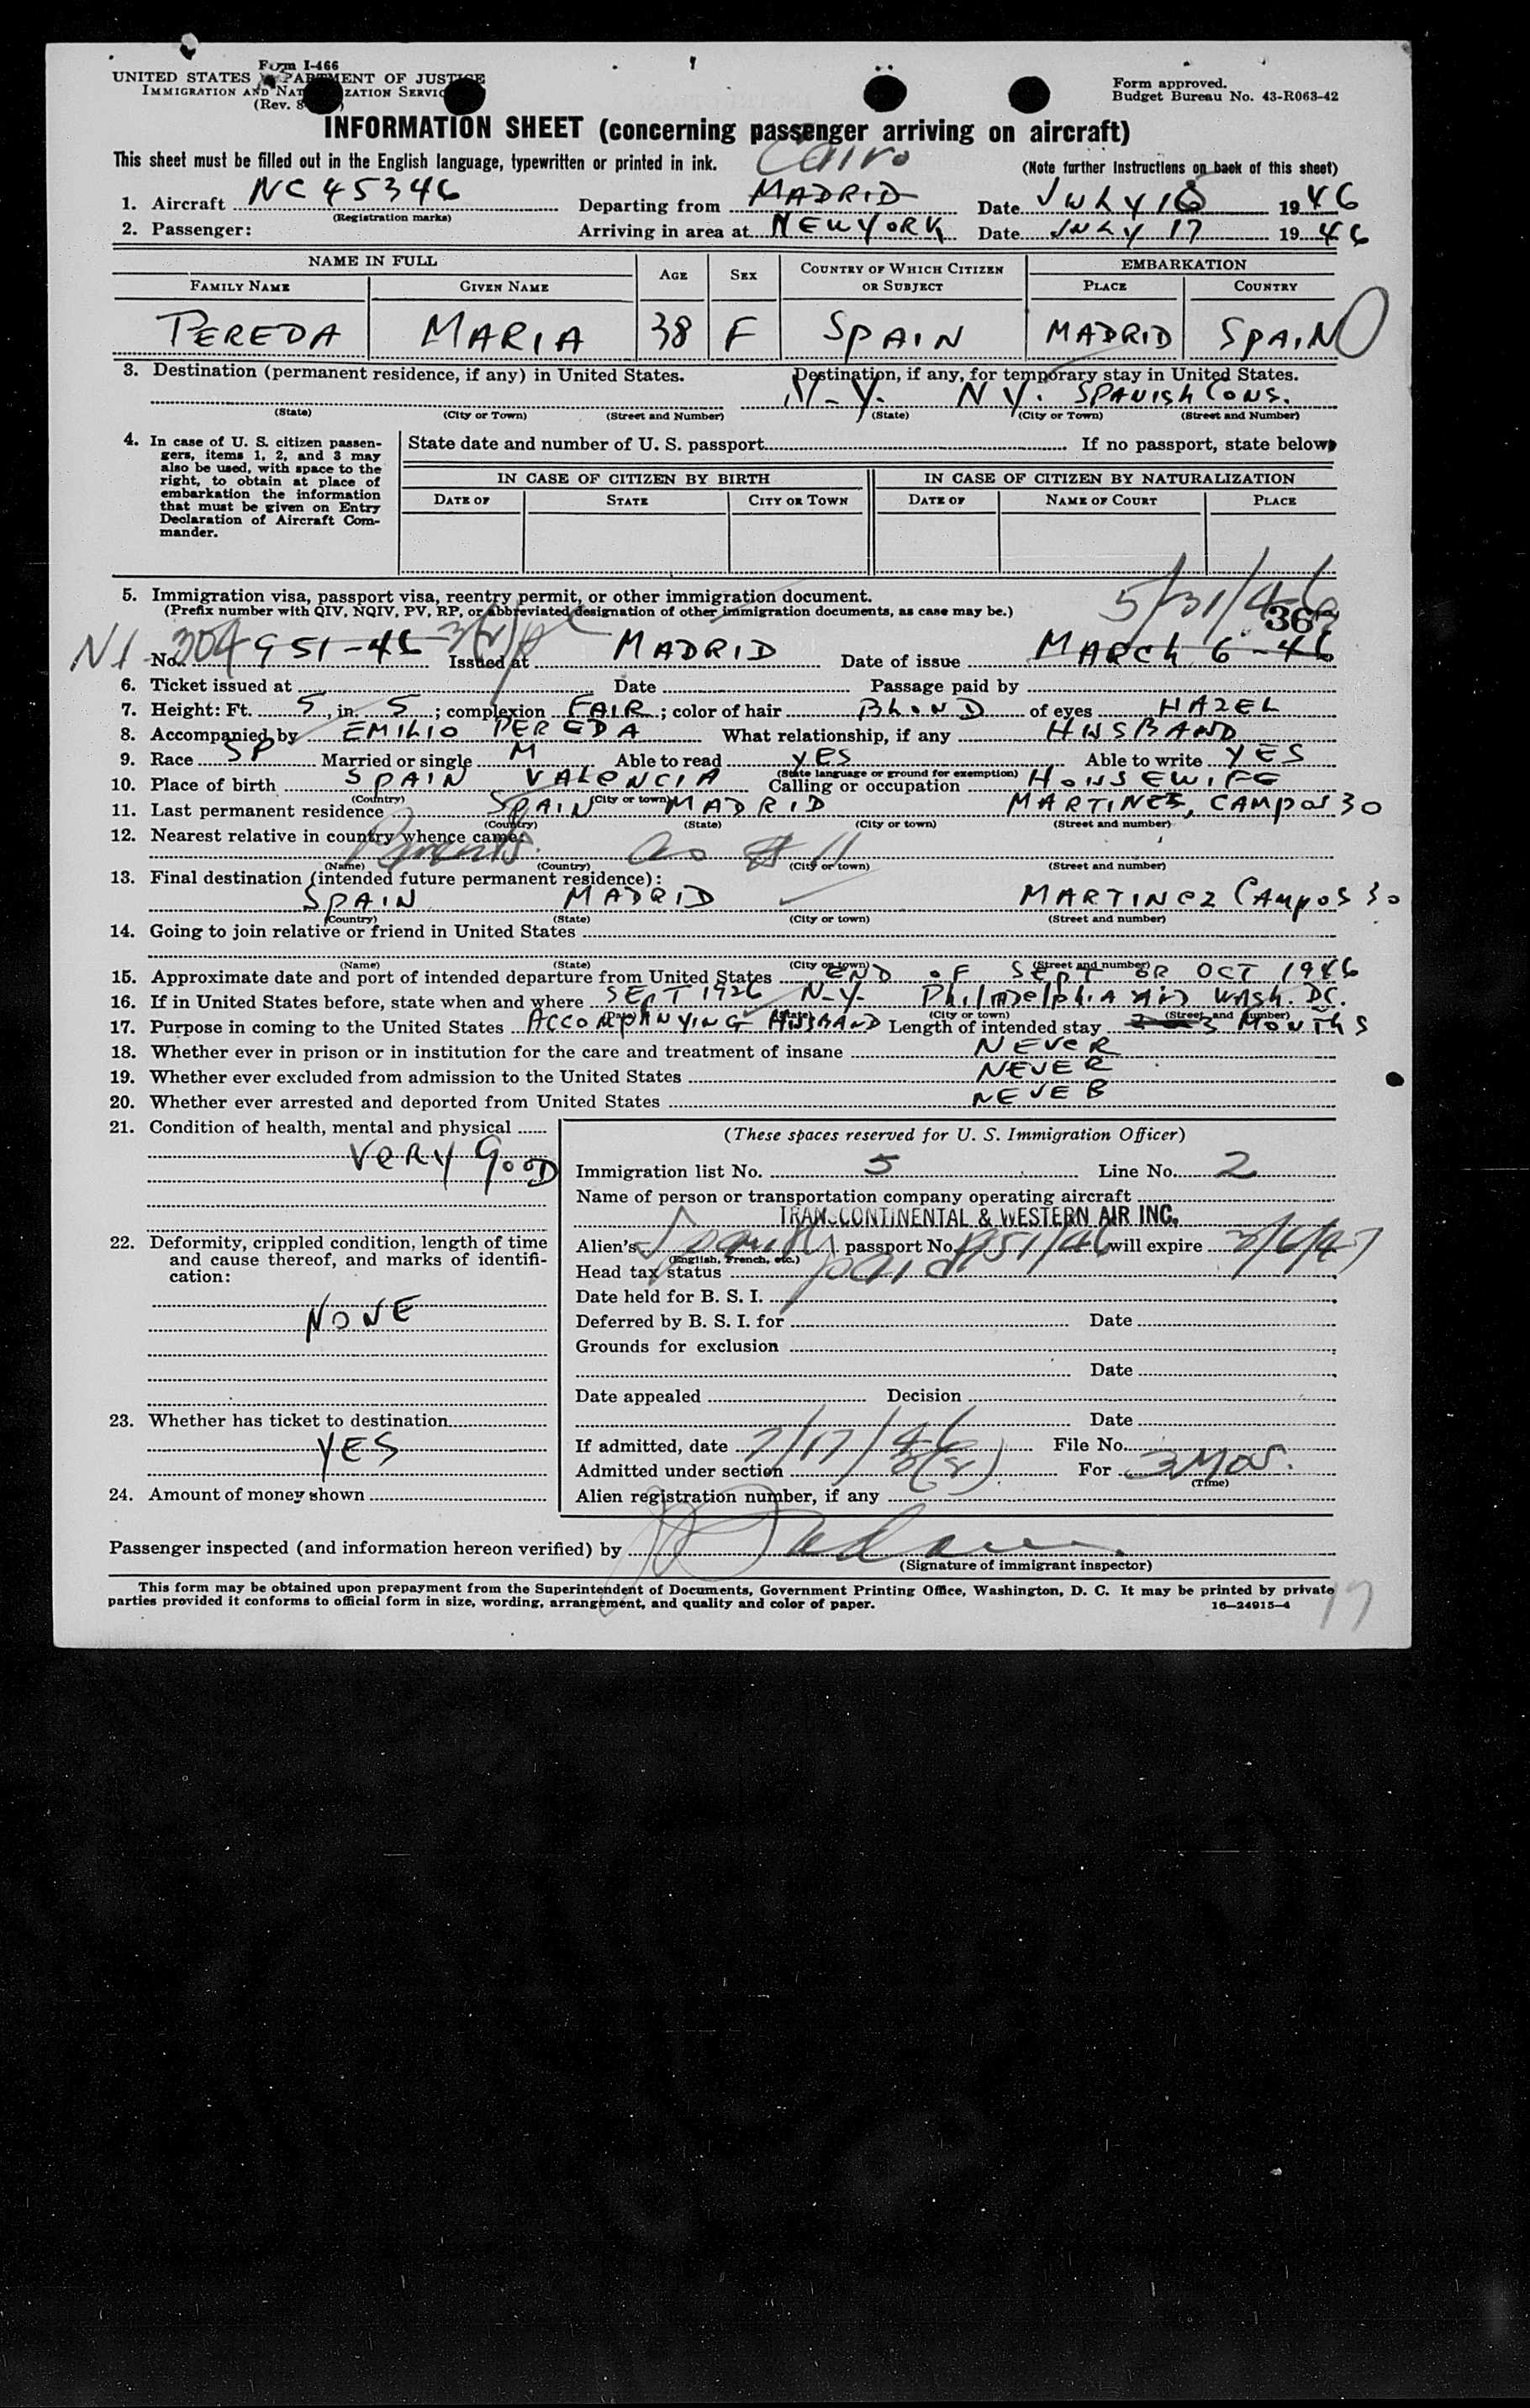 Form I-466
UNITED STATES DEPARTMENT OF JUSTICE
IMMIGRATION AND NATURALIZATION SERVICE
(Rev. 8
Form approved.
Budget Bureau No. 43-R063-42
INFORMATION SHEET (concerning passenger arriving on aircraft)
This sheet must be filled out in the English language, typewritten or printed in ink.
Cairo
(Note further instructions on back of this sheet)
1. Aircraft NC 45346 Departing from MADRID Date JULY 16 1946
(Registration marks)
2. Passenger: Arriving in area at NEW YORK Date JULY 17 1946
NAME IN FULL AGE SEX COUNTRY OF WHICH CITIZEN OR SUBJECT EMBARKATION
FAMILY NAME GIVEN NAME PLACE COUNTRY
PEREDA MARIA 38 F SPAIN MADRID SPAIN
3. Destination (permanent residence, if any) in United States. Destination, if any, for temporary stay in United States.
N-Y. N Y. SPANISH CONS.
(State) (City or Town) (Street and Number) (State) (City or Town) (Street and Number)
4. In case of U. S. citizen passengers, items 1, 2, and 3 may also be used, with space to the right, to obtain at place of embarkation the information that must be given on Entry Declaration of Aircraft Commander.
State date and number of U. S. passport If no passport, state below
IN CASE OF CITIZEN BY BIRTH IN CASE OF CITIZEN BY NATURALIZATION
DATE OF STATE CITY OR TOWN DATE OF NAME OF COURT PLACE
5. Immigration visa, passport visa, reentry permit, or other immigration document.
(Prefix number with QIV, NQIV, PV, RP, or abbreviated designation of other immigration documents, as case may be.)
5/31/46
367
NI No. 304 951-46 3(2) Issued at MADRID Date of issue MARCH 6-46
6. Ticket issued at Date Passage paid by
7. Height: Ft. 5, in. 5; complexion FAIR; color of hair BLOND of eyes HAZEL
8. Accompanied by EMILIO PEREDA What relationship, if any HUSBAND
9. Race SP Married or single M Able to read YES Able to write YES
(State language or ground for exemption)
10. Place of birth SPAIN VALENCIA Calling or occupation HOUSEWIFE
(Country) (City or town)
11. Last permanent residence SPAIN MADRID MARTINEZ, CAMPOS 30
(Country) (State) (City or town) (Street and number)
12. Nearest relative in country whence came:
Parents. as # 11
(Name) (Country) (City or town) (Street and number)
13. Final destination (intended future permanent residence):
SPAIN MADRID MARTINEZ CAMPOS 30
(Country) (State) (City or town) (Street and number)
14. Going to join relative or friend in United States
(Name) (State) (City or town) (Street and number)
15. Approximate date and port of intended departure from United States END OF SEPT OR OCT 1946
16. If in United States before, state when and where SEPT 1926 N-Y- Philadelphia AND WASH. DC.
(Date) (State) (City or town) (Street and number)
17. Purpose in coming to the United States ACCOMPANYING HUSBAND Length of intended stay 3 MONTHS
18. Whether ever in prison or in institution for the care and treatment of insane NEVER
19. Whether ever excluded from admission to the United States NEVER
20. Whether ever arrested and deported from United States NEVER
21. Condition of health, mental and physical
VERY GOOD
22. Deformity, crippled condition, length of time and cause thereof, and marks of identification:
NONE
23. Whether has ticket to destination
YES
24. Amount of money shown
(These spaces reserved for U. S. Immigration Officer)
Immigration list No. 5 Line No. 2
Name of person or transportation company operating aircraft
TRANSCONTINENTAL & WESTERN AIR INC.
Alien's Spanish passport No. 951/46 will expire 3/6/47
(English, French, etc.)
Head tax status paid
Date held for B. S. I.
Deferred by B. S. I. for Date
Grounds for exclusion
Date
Date appealed Decision
Date
If admitted, date 7/17/46 File No.
Admitted under section 3(2) For 3 MOS.
(Time)
Alien registration number, if any
Passenger inspected (and information hereon verified) by
(Signature of immigrant inspector)
This form may be obtained upon prepayment from the Superintendent of Documents, Government Printing Office, Washington, D. C. It may be printed by private
parties provided it conforms to official form in size, wording, arrangement, and quality and color of paper. 16—24915-4
17